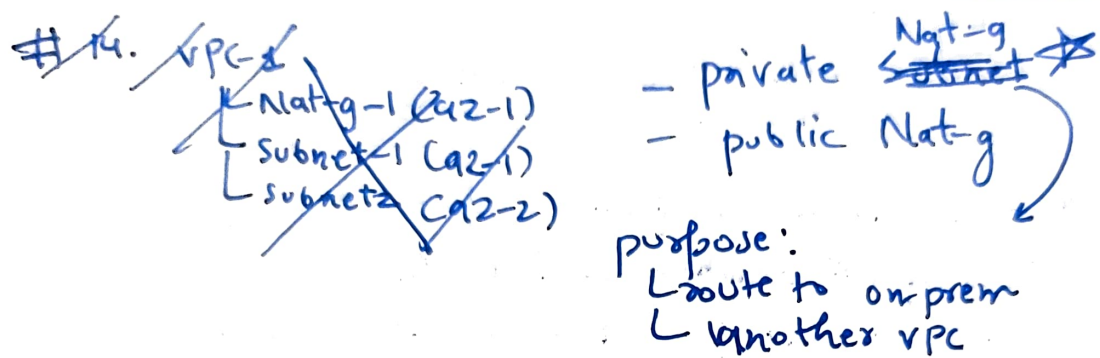 # 14. VPC-1
Nat-g-1 (az-1)
Subnet-1 (az-1)
Subnet2 (az-2)
- private Subnet Nat-g
- public Nat-g
purpose:
route to on prem
another vpc